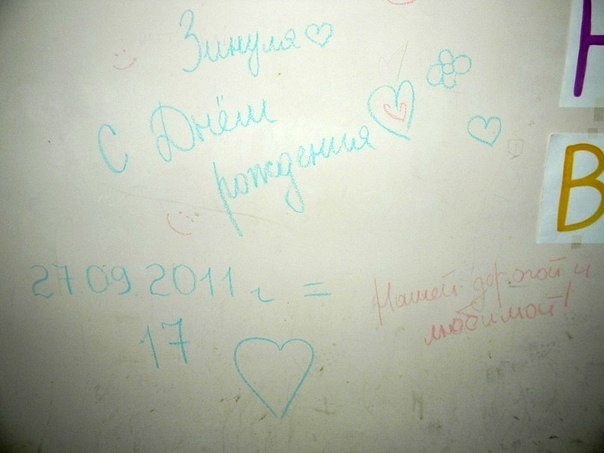 Зинуля
С Днём
рождения
27.09.2011 г. =
17
Нашей дорогой и
любимой!
Н
В